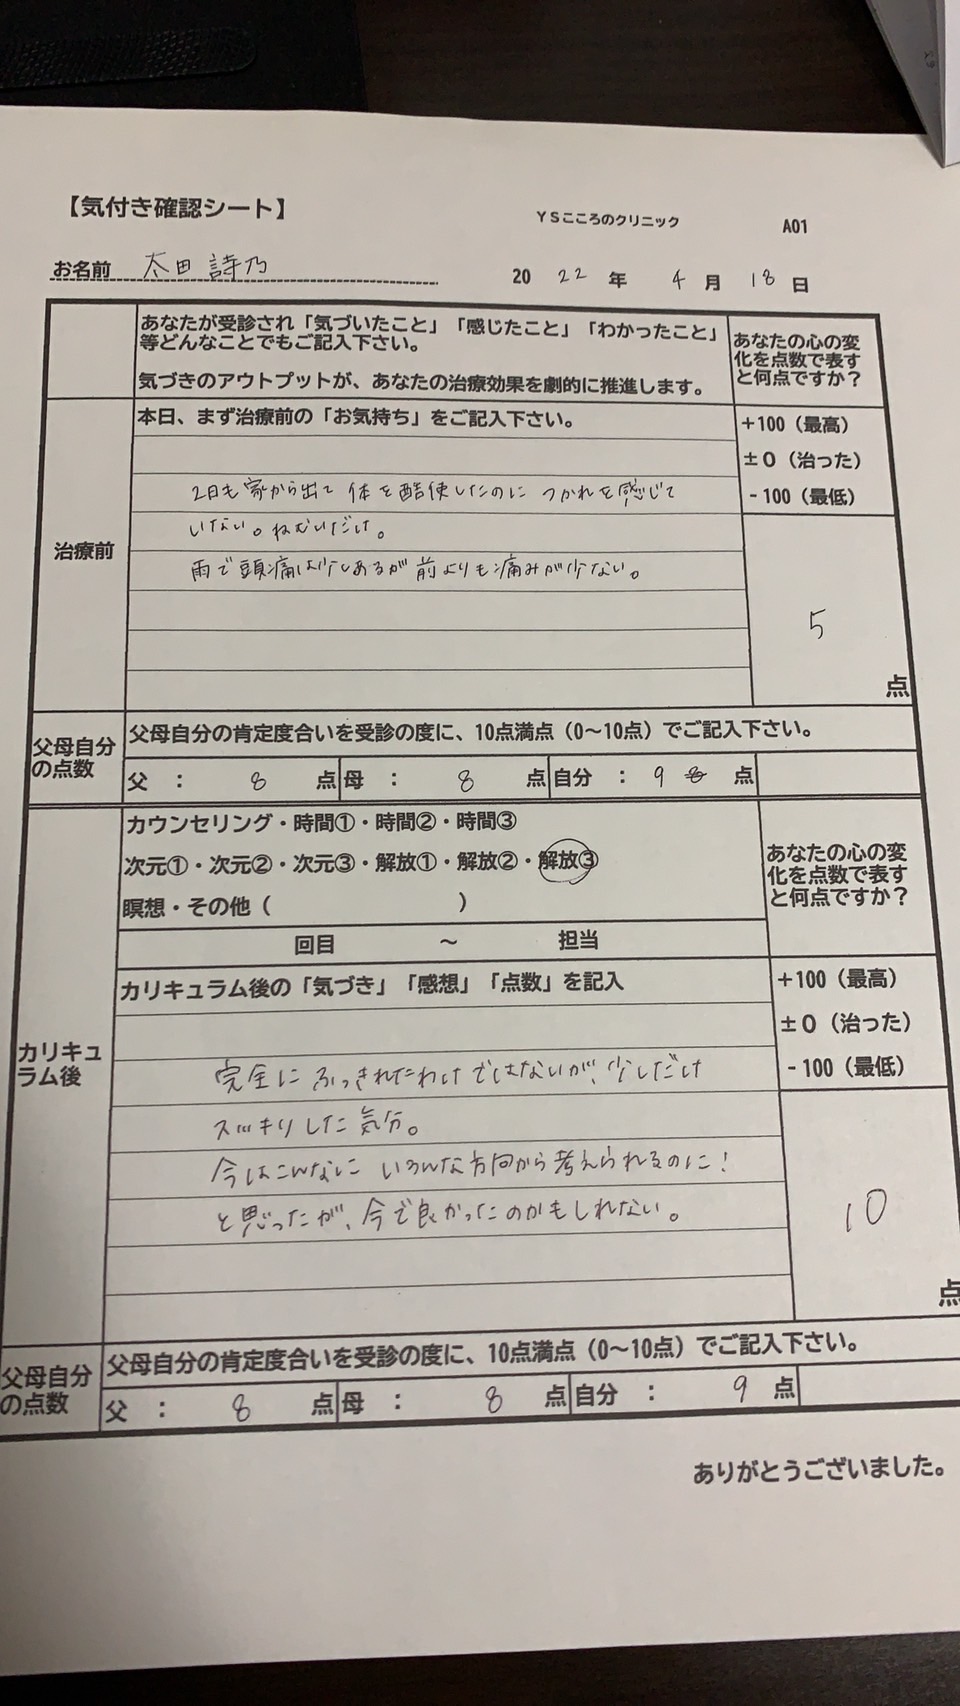 【気付き確認シート】
YSこころのクリニック
A01
お名前 太田 詩乃
2022年 4月 18日
あなたが受診され「気づいたこと」「感じたこと」「わかったこと」
等どんなことでもご記入下さい。
気づきのアウトプットが、あなたの治療効果を劇的に推進します。
あなたの心の変
化を点数で表す
と何点ですか？
治療前
本日、まず治療前の「お気持ち」をご記入下さい。
2日も家から出て 体を酷使したのに つかれを感じて
いない。ねむいだけ。
雨で頭痛は少しあるが 前よりも痛みが少ない。
+100（最高）
±０（治った）
-100（最低）
5
点
父母自分
の点数
父母自分の肯定度合いを受診の度に、10点満点（0～10点）でご記入下さい。
父 ： 8 点 母 ： 8 点 自分 ： 9 点
カリキュ
ラム後
カウンセリング・時間①・時間②・時間③
次元①・次元②・次元③・解放①・解放②・解放③
瞑想・その他（ ）
回目 ～ 担当
あなたの心の変
化を点数で表す
と何点ですか？
カリキュラム後の「気づき」「感想」「点数」を記入
完全に ふっきれたわけではないが、少しだけ
スッキリした気分。
今はこんなに いろんな方向から考えられるのに！
と思ったが、今で良かったのかもしれない。
+100（最高）
±０（治った）
-100（最低）
10
点
父母自分
の点数
父母自分の肯定度合いを受診の度に、10点満点（0～10点）でご記入下さい。
父 ： 8 点 母 ： 8 点 自分 ： 9 点
ありがとうございました。